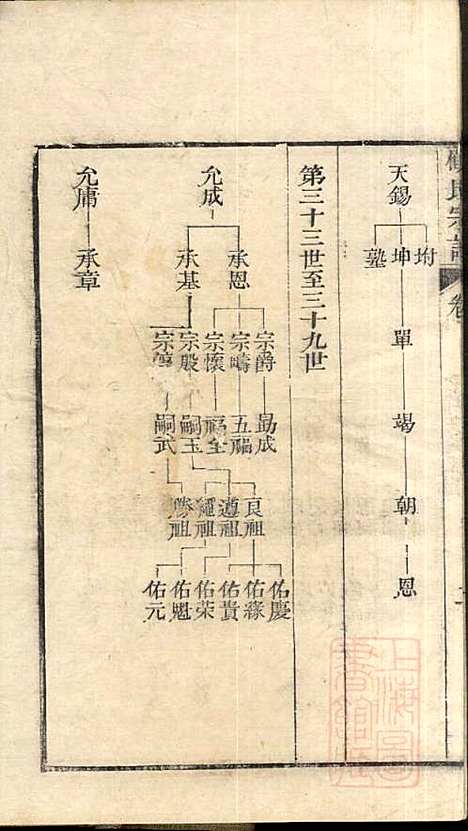 氏宗譜
卷
天錫
坿 坤 塾
單
竭
朝
恩
第三十三世至三十九世
允成
承恩 承基
宗爵 宗疇 宗懷 宗殷
勛成 五福 福全 嗣玉 嗣武
良祖 遵祖 繩祖 勝祖
佑慶 佑森 佑貴 佑荣 佑魁 佑元
允庸
承章
上海圖書館藏